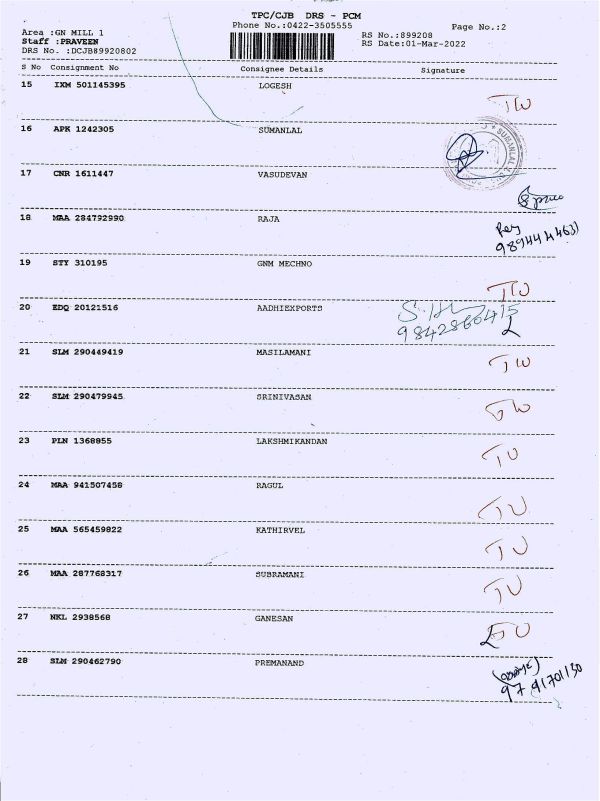 TPC/CJB DRS - PCM
Phone No.:0422-3505555
Page No.:2
Area :GN MILL 1
RS No.:899208
Staff :PRAVEEN
RS Date:01-Mar-2022
DRS No. :DCJB89920802
S No Consignment No Consignee Details Signature
15 IXM 501145395 LOGESH
16 APK 1242305 SUMANLAL
SUMANLAL
17 CNR 1611447 VASUDEVAN
18 MAA 284792990 RAJA
19 STY 310195 GNM MECHNO
20 EDQ 20121516 AADHIEXPORTS
9842860415
21 SLM 290449419 MASILAMANI
22 SLM 290479945 SRINIVASAN
23 PLN 1368855 LAKSHMIKANDAN
24 MAA 941507458 RAGUL
25 MAA 565459822 KATHIRVEL
26 MAA 287768317 SUBRAMANI
27 NKL 2938568 GANESAN
28 SLM 290462790 PREMANAND
9791701130